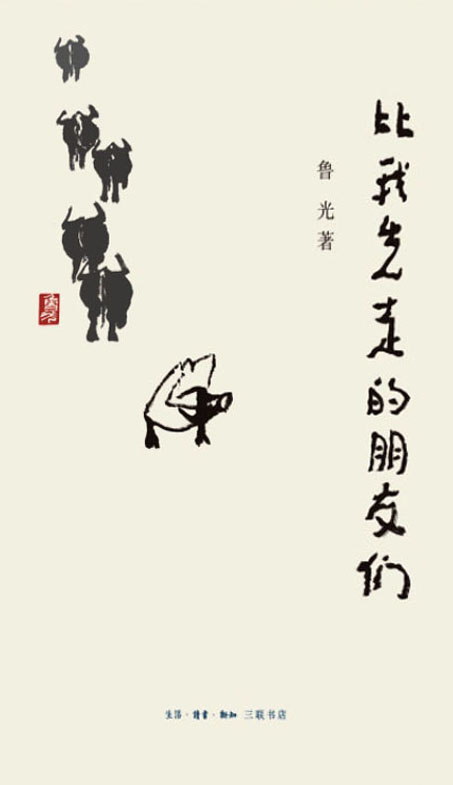 比我先走的朋友们
鲁光著
生活·讀書·新知 三联书店